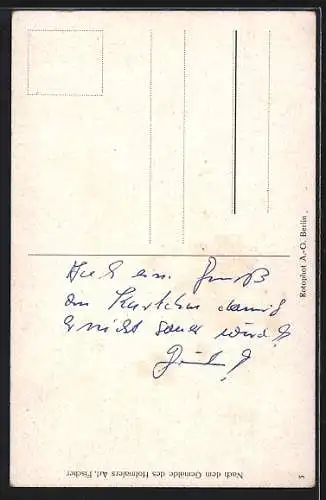 Auch ein Gruß
an Karlchen damit
er nicht sauer wird!
Rotophot A.-G. Berlin
Nach dem Gemälde des Hofmalers Art. Fischer
5